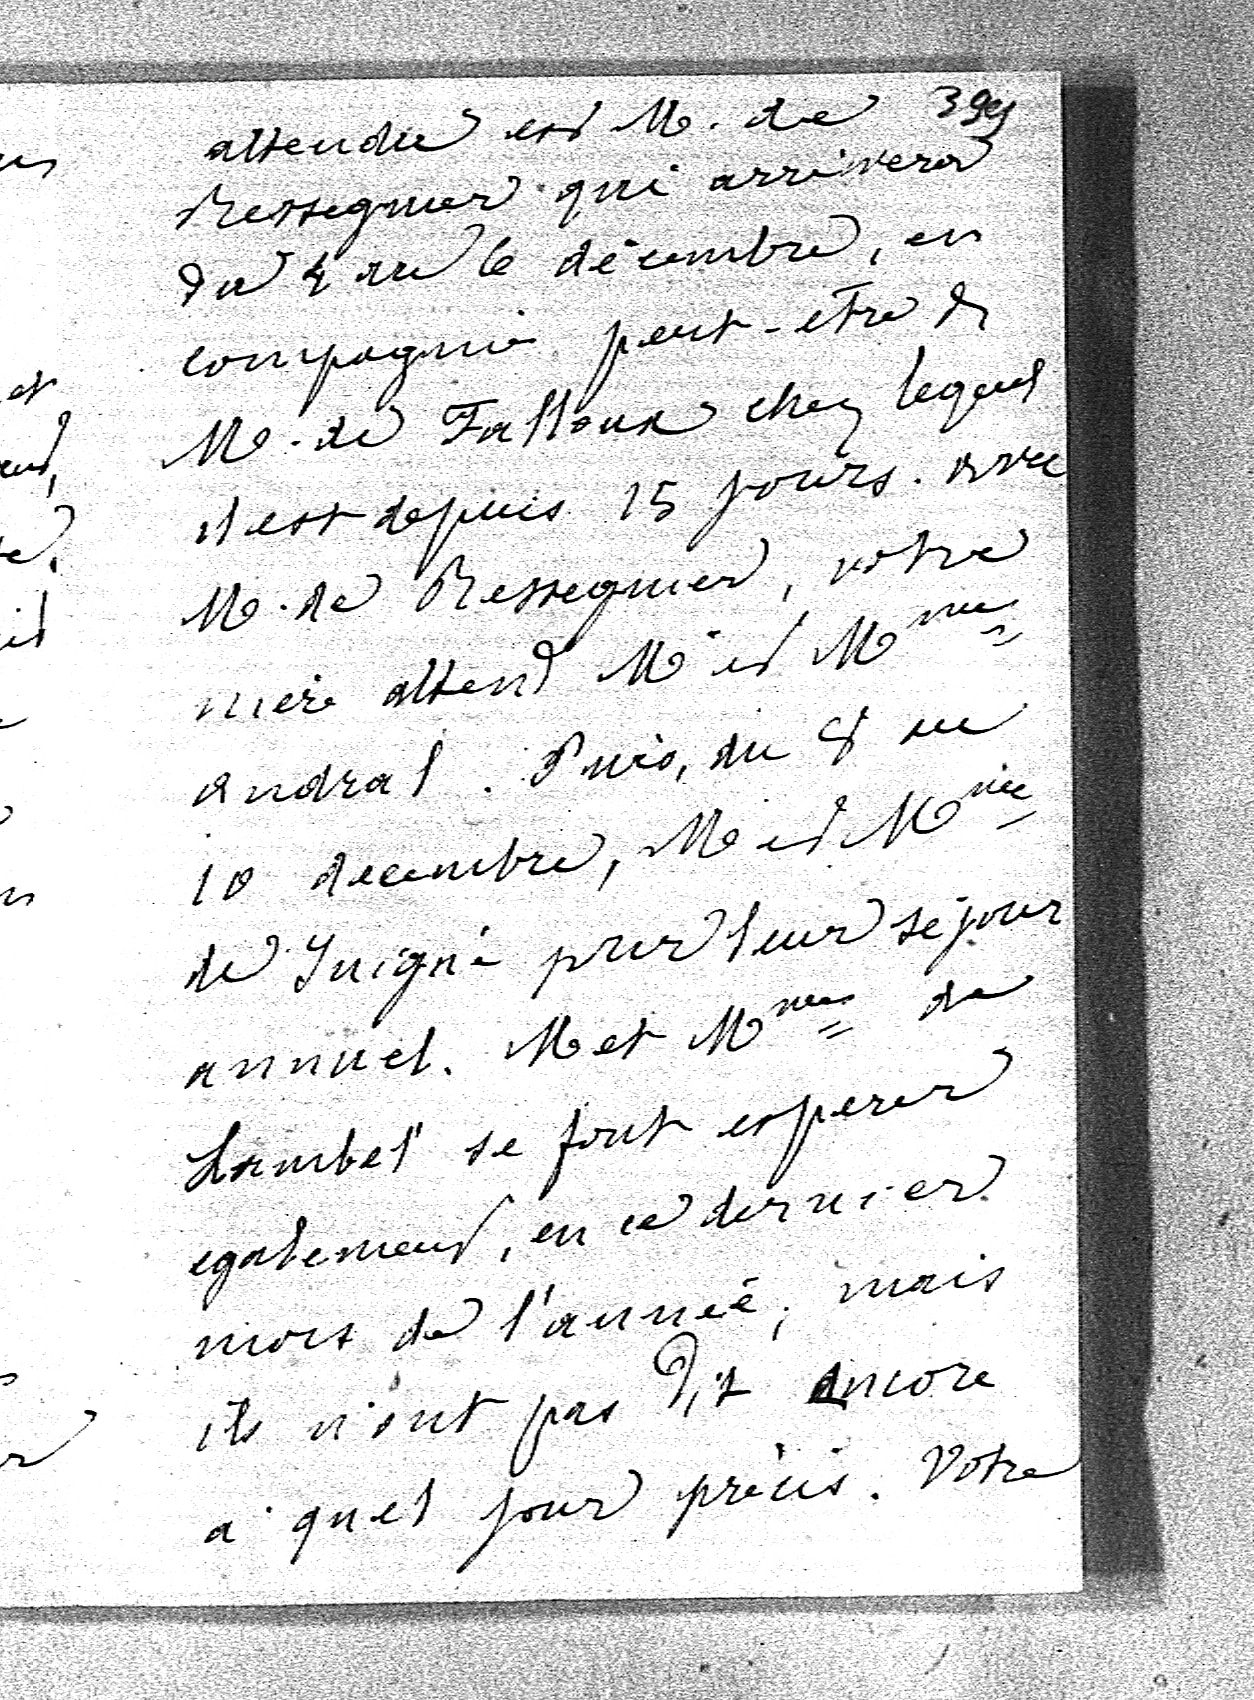 399
attendue est M. de
Ressegnier qui arrivera
du 4 au 6 décembre, en
compagnie peut-être de
M. de Falloux chez lequel
il est depuis 15 jours. avec
M. de Ressegnier, votre
mère attend M et Mme
Andral. Puis, du 8 au
10 decembre, M et Mme
de Juigné pour leur séjour
annuel. M et Mme de
Lambel se font esperer
egalement, en ce dernier
mois de l'année, mais
ils n'ont pas dit encore
a quel jour précis. Votre